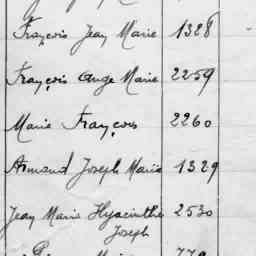 François Jean Marie 1328
François Ange Marie 2259
Marie François 2260
Armand Joseph Marie 1329
Jean Marie Hyacinthe 2530
Joseph